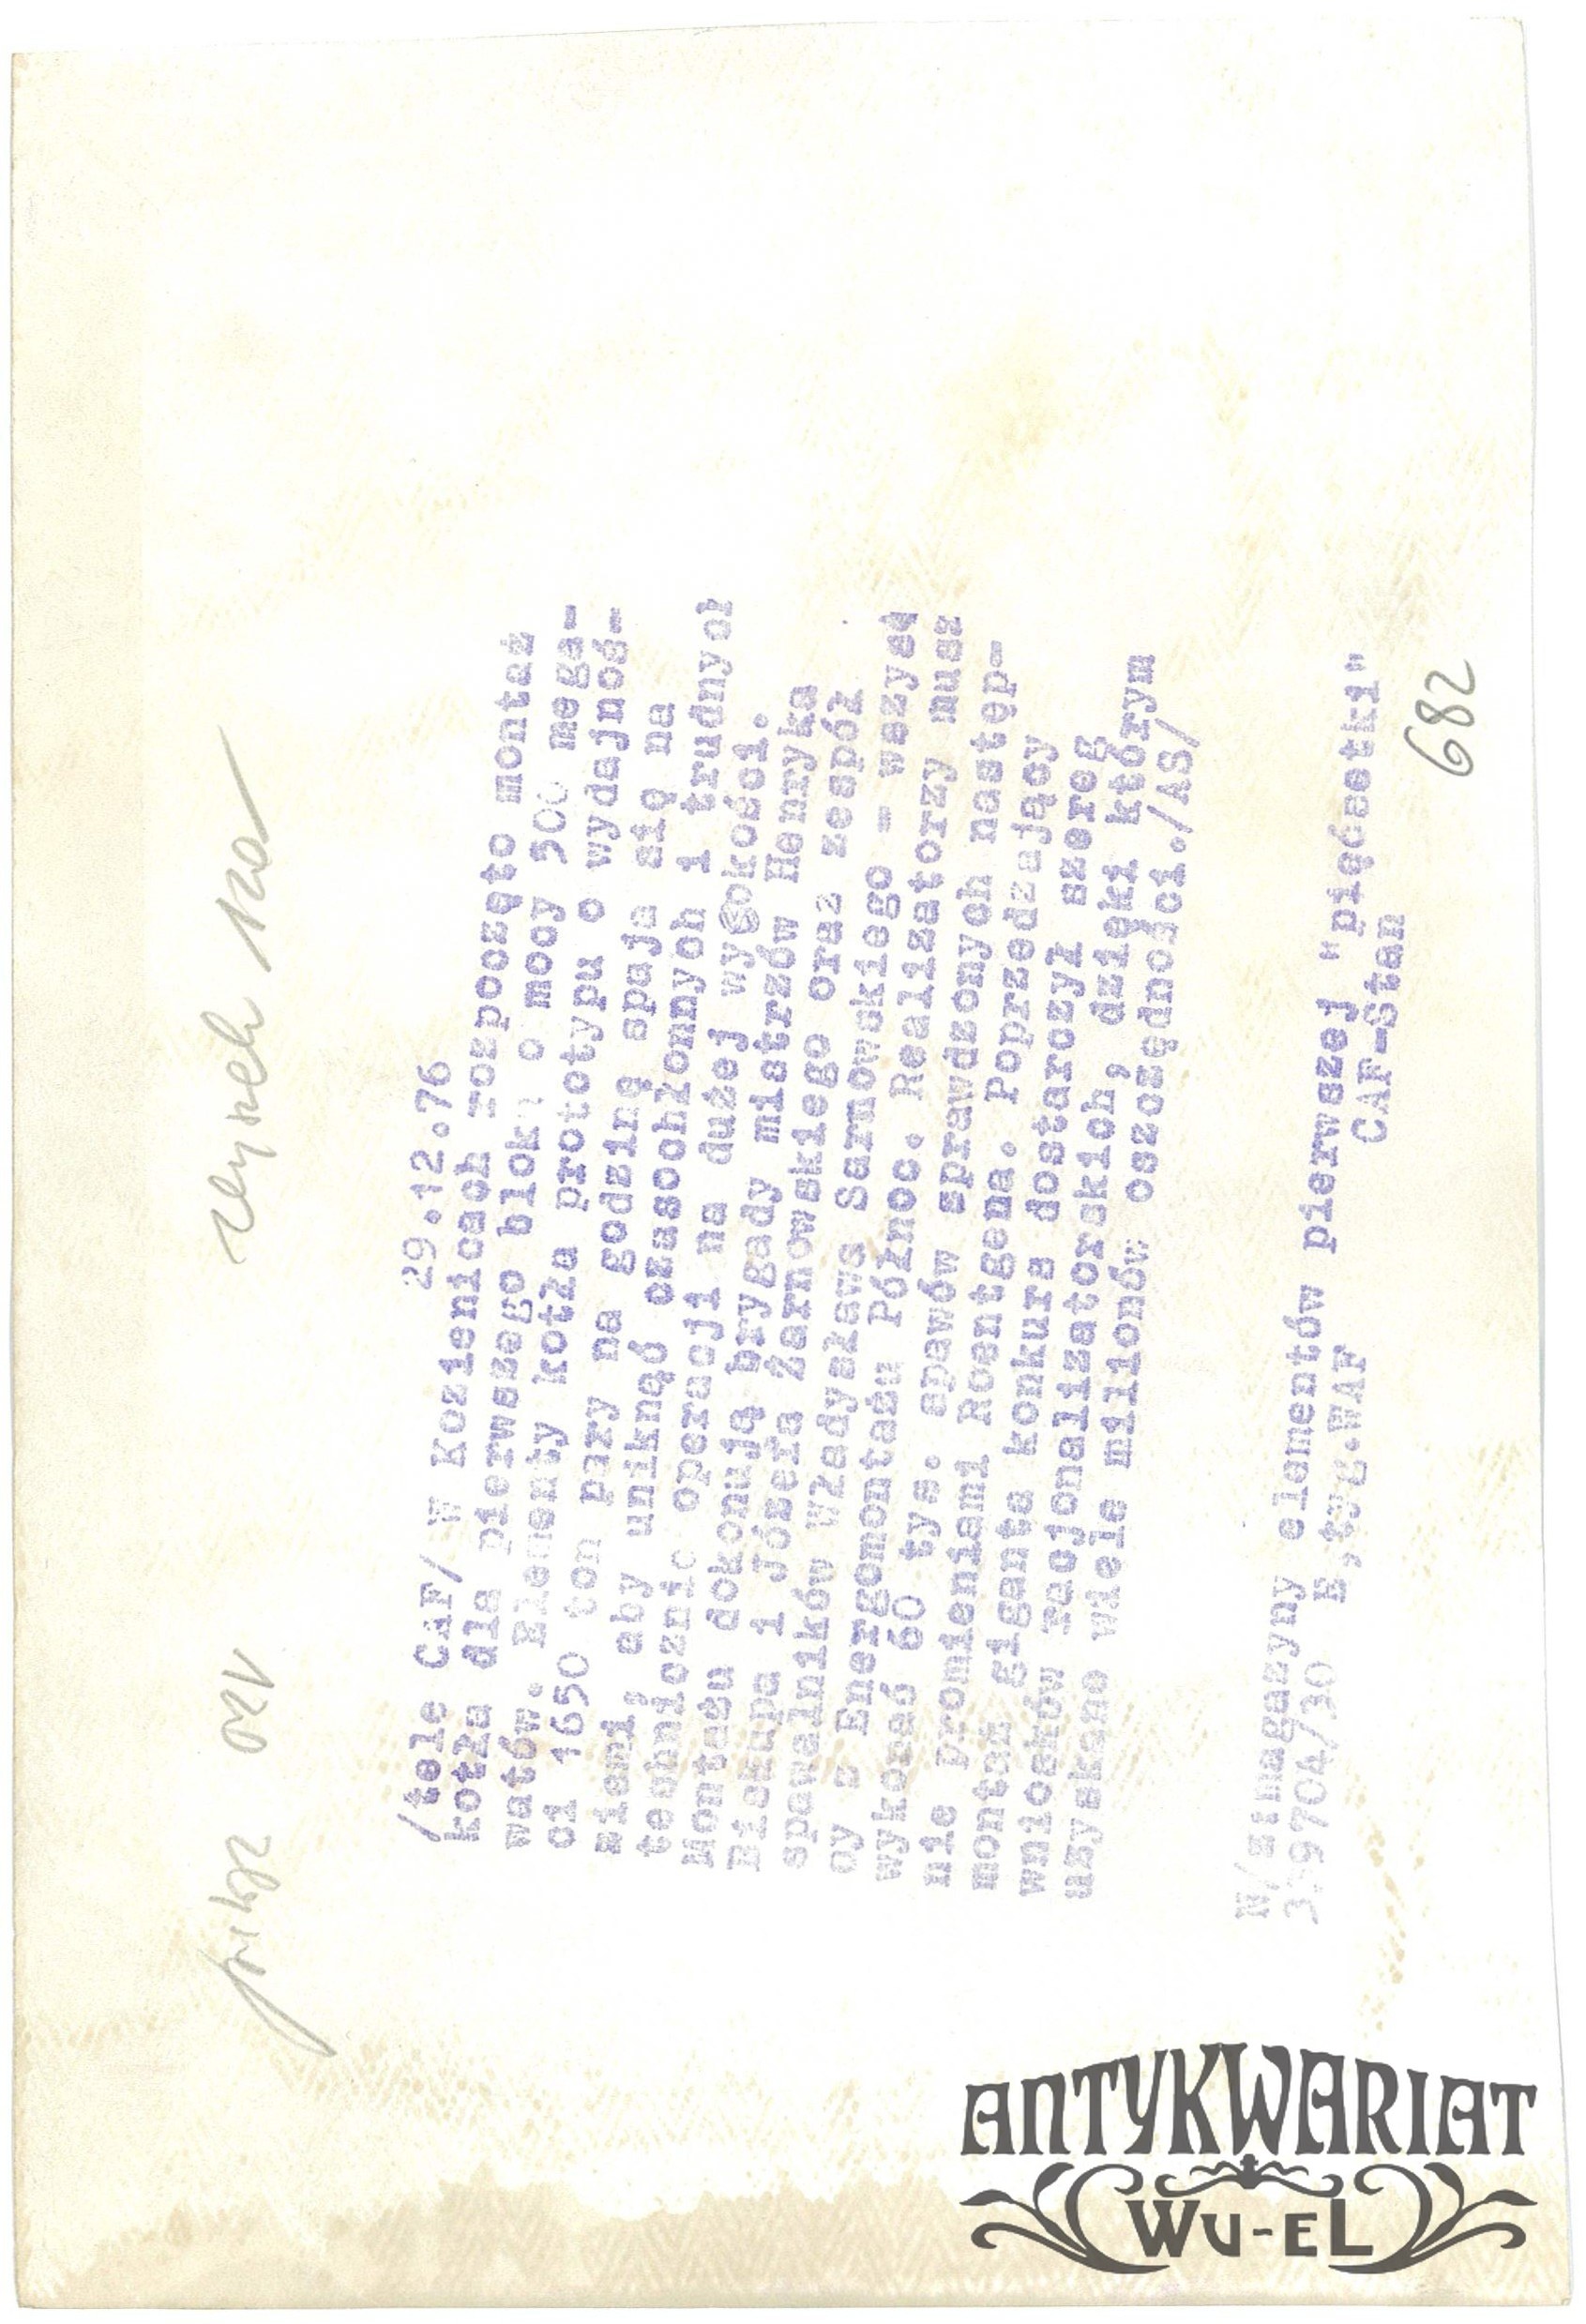 29.12.76
/tele CAF/ W Kozienicach rozpoczęto montaż
kotła dla pierwszego bloku o mocy 500 mega-
watów. Elementy kotła prototypu o wydajnoś-
ci 1650 ton pary na godzinę spaja się na
ziemi, aby uniknąć czasochłonnych i trudnych
technicznie operacji na dużej wysokości.
Montażu dokonują brygady mistrzów Henryka
Biskupa i Józefa Żarnowskiego oraz zespół
spawalników Władysława Sarnowskiego - wszys
cy z Energomontażu Północ. Realizatorzy musz
wykonać 60 tys. spawów sprawdzonych następ-
nie promieniami Roentgena. Poprzedzający
montaż giganta konkurs dostarczył szereg
wniosków racjonalizatorskich, dzięki którym
uzyskano wiele milionów oszczędności./AS/
N/z:magazyny elementów pierwszej "pięćsetki"
CAF-Stan
682
ANTYKWARIAT
WU-EL